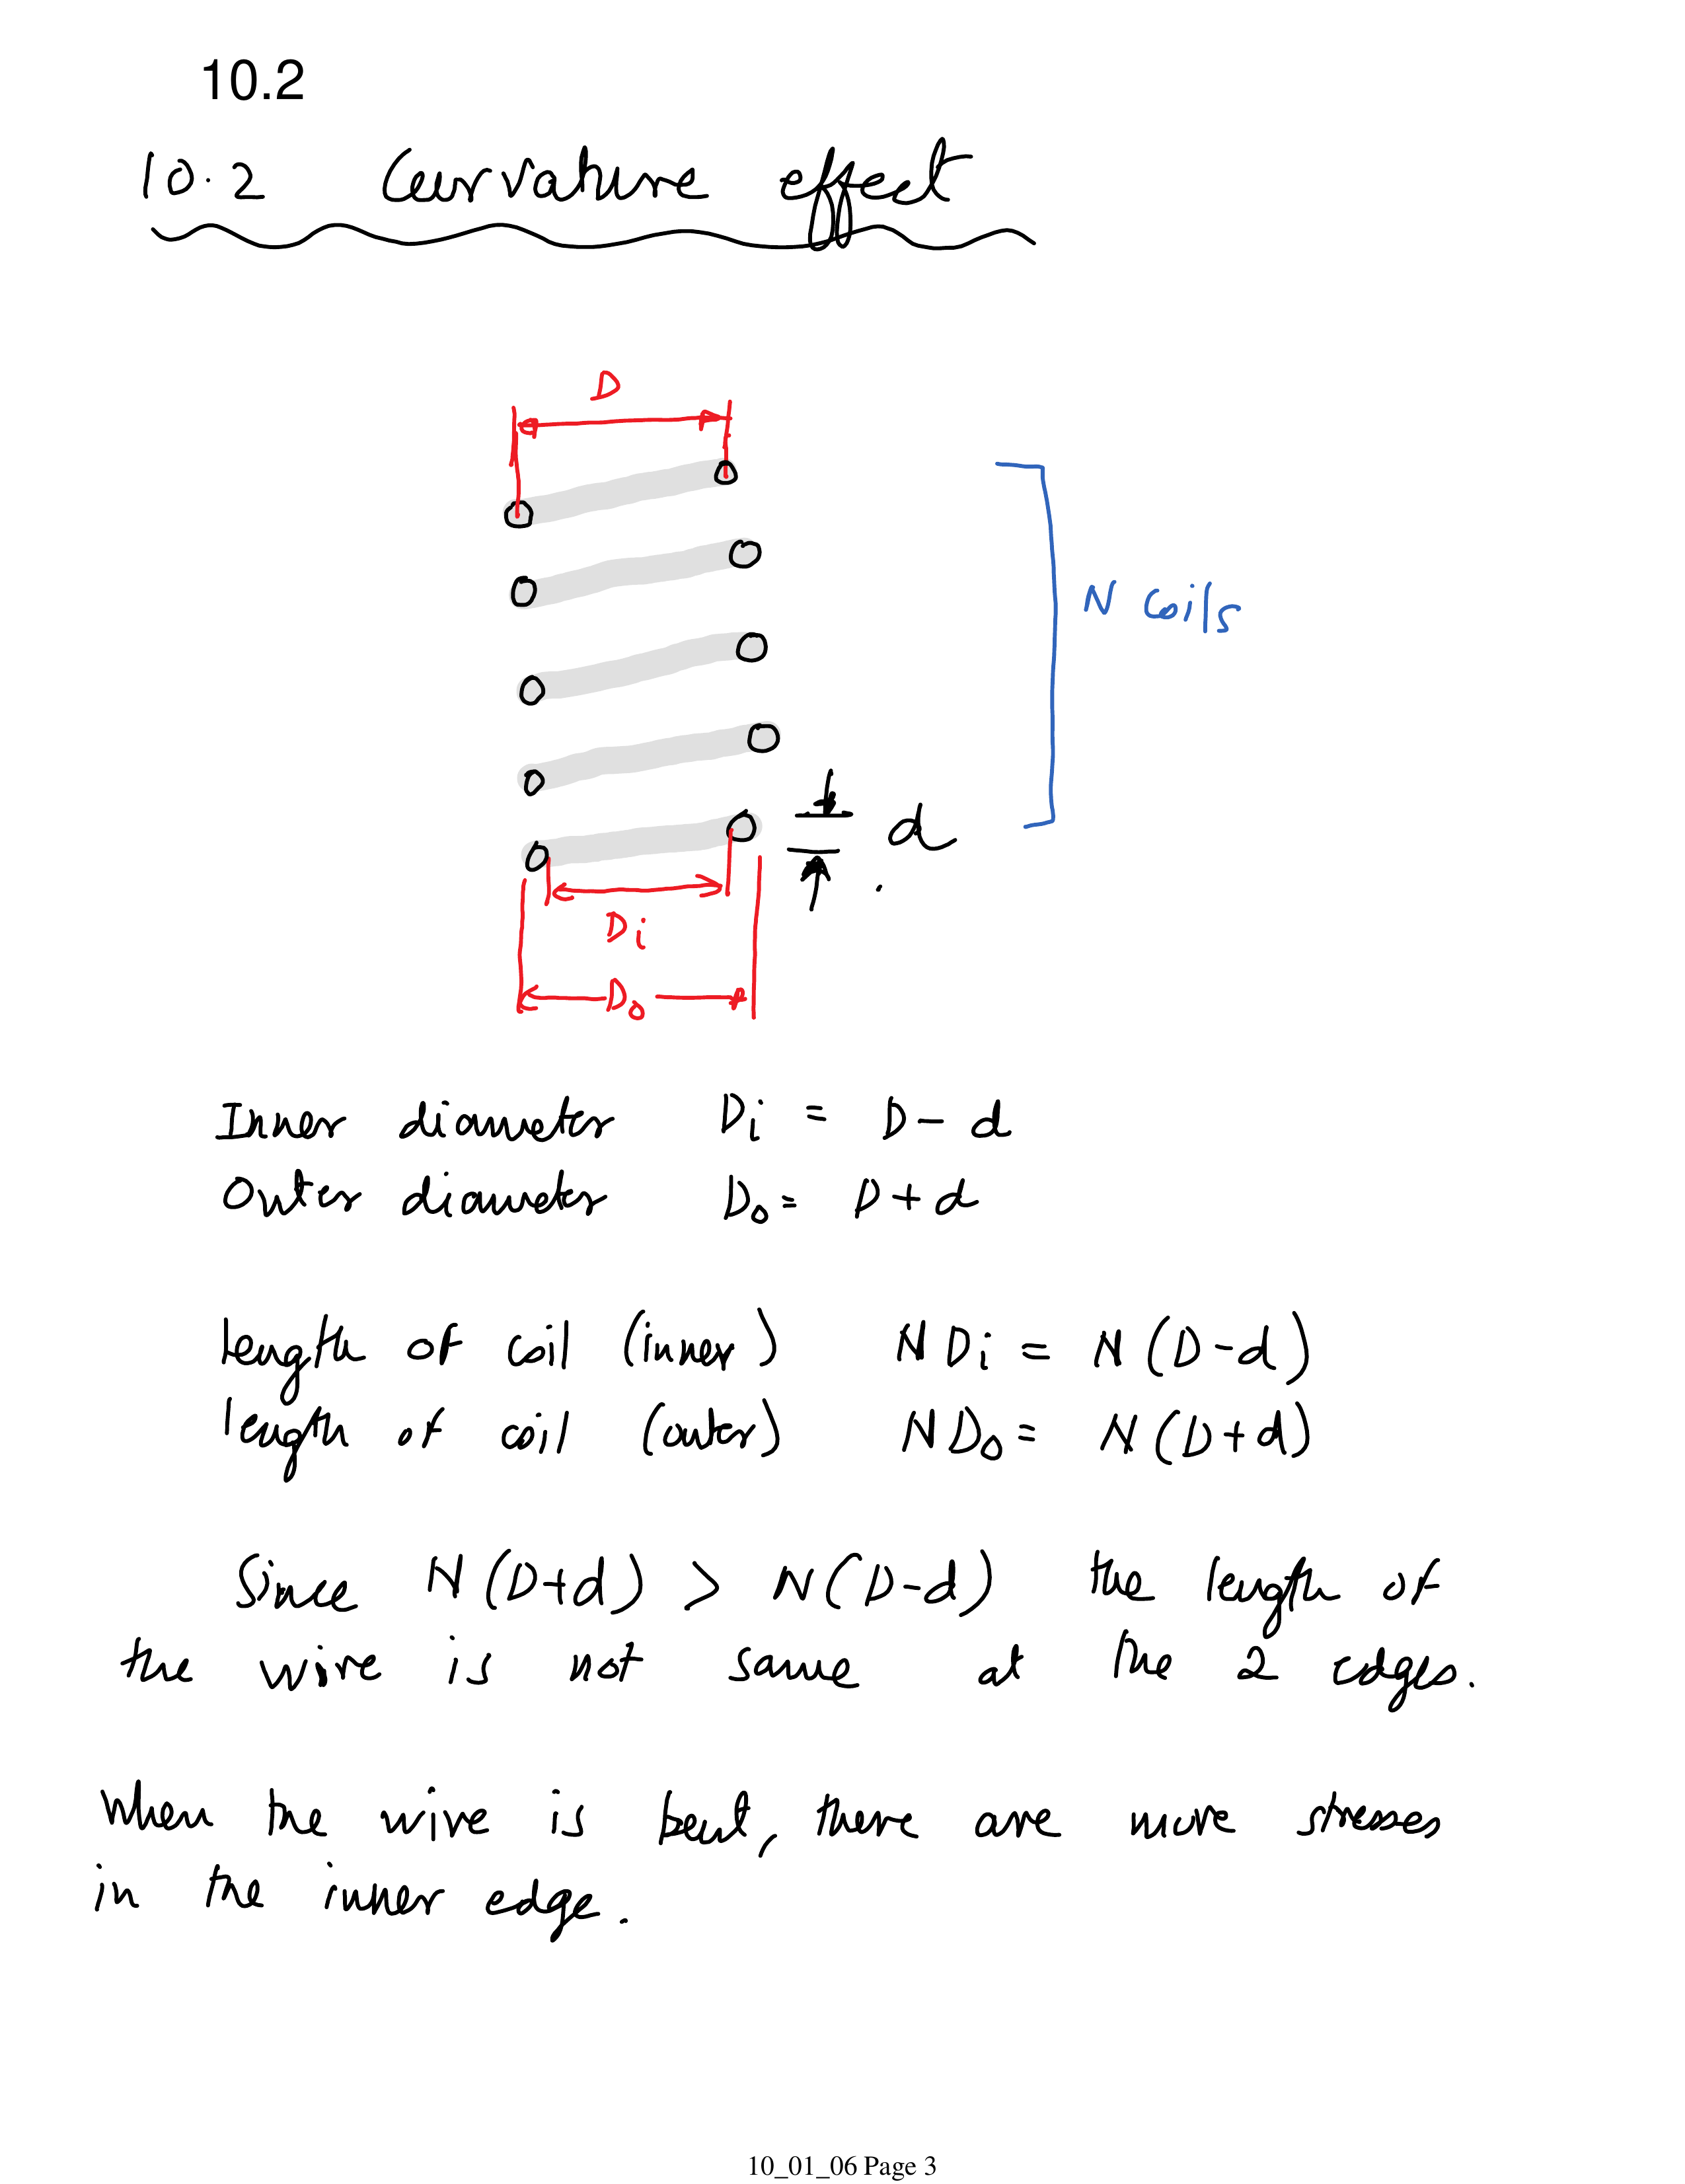 10.2
10.2 Curvature effect
D
N coils
d
Di
Do
Inner diameter Di = D - d
Outer diameter Do = D + d
length of coil (inner) N Di = N (D-d)
length of coil (outer) N Do = N (D+d)
Since N (D+d) > N (D-d) the length of
the wire is not same at the 2 edges.
When the wire is bent, there are more stresses
in the inner edge.
10_01_06 Page 3